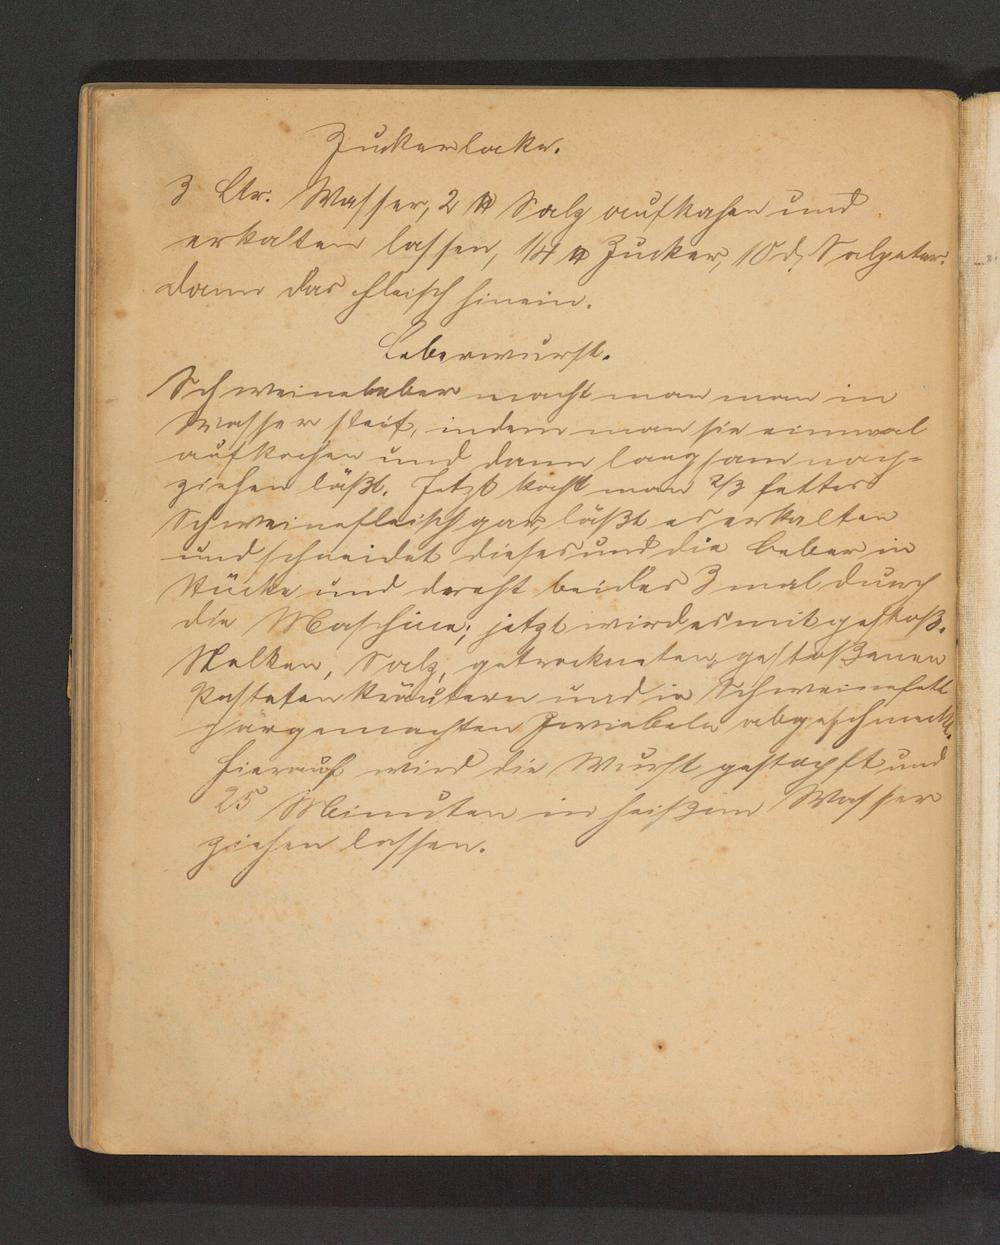 Zuckerlake.
3 Ltr. Wasser, 2 ℔ Salz aufkochen und
erkalten lassen, 1/4 ℔ Zucker, 10 d, Salpeter.
dann das Fleisch hinein.
Leberwurst.
Schweineleber macht man man in
Wasser steif, indem man sie einmal
aufkochen und dann langsam nach-
ziehen läßt. Jetzt kocht man 2/3 fettes
Schweinefleisch gar, läßt es erkalten
und schneidet dieses und die Leber in
Stücke und dreht beides 3 mal durch
die Maschine; jetzt wird es mit gestoß.
Nelken, Salz, getrockneten, gestoßenen
Pastetenkräutern und in Schweinefett
gargemachten Zwiebeln abgeschmeckt.
Hierauf wird die Wurst gestopft und
25 Minuten in heißem Wasser
ziehen lassen.